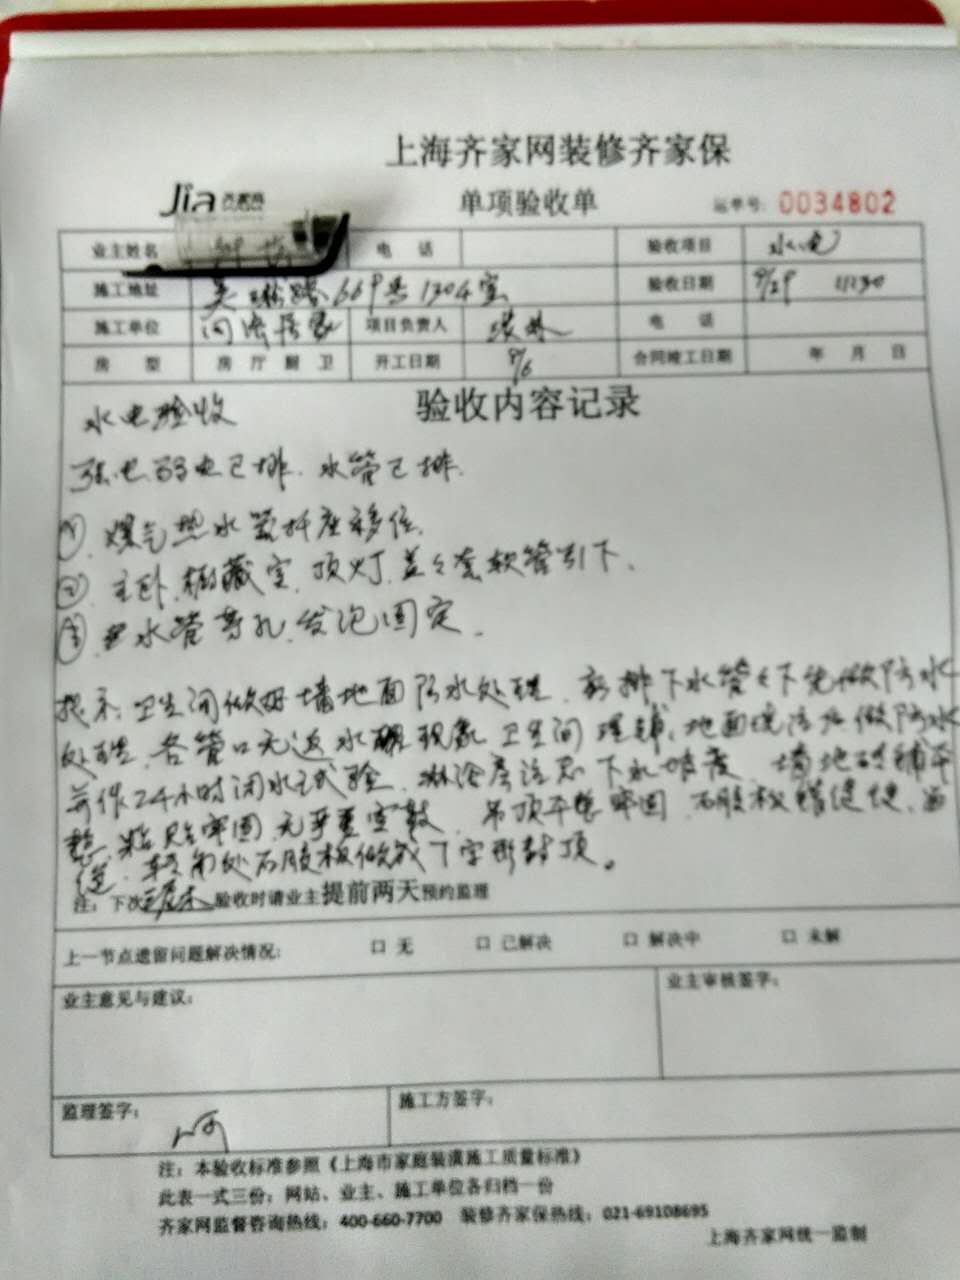 上海齐家网装修齐家保
Jia 齐家网 单项验收单 运单号: 0034802
业主姓名 电 话 验收项目 水电
施工地址 669号1304室 验收日期
施工单位 项目负责人 电 话
房 型 房 厅 厨 卫 开工日期 9/6 合同竣工日期 年 月 日
水电验收 验收内容记录
强电弱电已排.水管已排.
①.煤气热水器插座移位.
②.主卧.储藏室.顶灯.盖套软管引下.
③.水管等孔.发泡固定.
提示:卫生间做好墙地面防水处理.新排下水管下先做防水
处理.各管口无返水现象.卫生间理铺.地面后做防水
并作24小时闭水试验.淋浴房注意下水坡度.墙地砖铺平
整.粘贴牢固.无严重空鼓.吊顶平整牢固.石膏板错缝
缝.转角处石膏板做成7字形封顶。
注:下次 验收时请业主提前两天预约监理
上一节点遗留问题解决情况: □ 无 □ 已解决 □ 解决中 □ 未解
业主意见与建议: 业主审核签字:
监理签字: 施工方签字:
注:本验收标准参照《上海市家庭装潢施工质量标准》
此表一式三份:网站、业主、施工单位各归档一份
齐家网监督咨询热线:400-660-7700 装修齐家保热线:021-69108695
上海齐家网统一监制